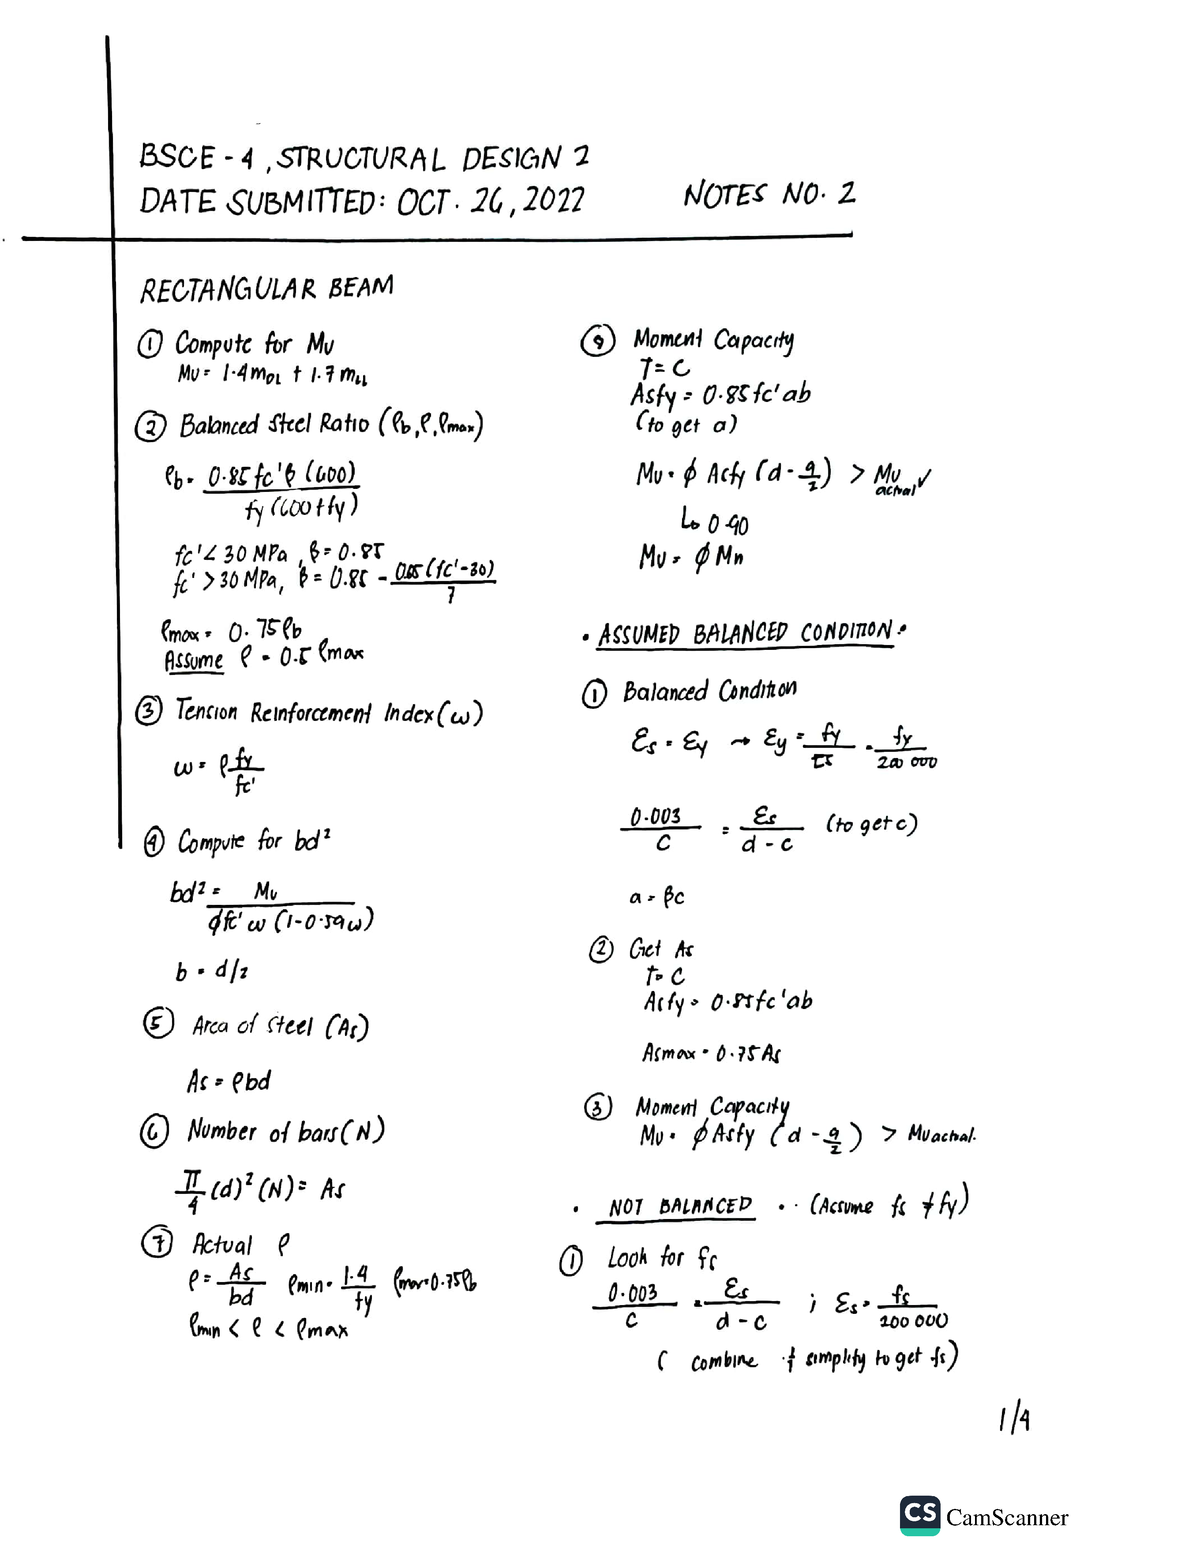 BSCE - 4, STRUCTURAL DESIGN 2
DATE SUBMITTED: OCT. 26, 2022
NOTES NO. 2
RECTANGULAR BEAM
① Compute for Mu
Mu = 1.4 mDL + 1.7 mLL
② Balanced Steel Ratio (ρb, ρ, ρmax)
ρb = 0.85 fc' β (600) / fy (600 + fy)
fc' < 30 MPa, β = 0.85
fc' > 30 MPa, β = 0.85 - 0.05 (fc' - 30) / 7
ρmax = 0.75 ρb
Assume ρ = 0.5 ρmax
③ Tension Reinforcement Index (ω)
ω = ρ fy / fc'
④ Compute for bd²
bd² = Mu / φ fc' ω (1 - 0.59 ω)
b = d/2
⑤ Area of steel (As)
As = ρbd
⑥ Number of bars (N)
π/4 (d)² (N) = As
⑦ Actual ρ
ρ = As / bd   ρmin = 1.4 / fy   ρmax = 0.75 ρb
ρmin < ρ < ρmax
⑨ Moment Capacity
T = C
Asfy = 0.85 fc' ab
(to get a)
Mu = φ Asfy (d - a/2) > Mu actual ✓
↳ 0.90
Mu = φ Mn
• ASSUMED BALANCED CONDITION •
① Balanced Condition
Ɛs = Ɛy → Ɛy = fy / Es = fy / 200 000
0.003 / c = Ɛs / d - c (to get c)
a = βc
② Get As
T = C
Asfy = 0.85 fc' ab
Asmax = 0.75 As
③ Moment Capacity
Mu = φ Asfy (d - a/2) > Mu actual.
• NOT BALANCED • • (Assume fs ≠ fy)
① Look for fs
0.003 / c = Ɛs / d - c ; Ɛs = fs / 200 000
( combine & simplify to get fs)
1/4
CS CamScanner